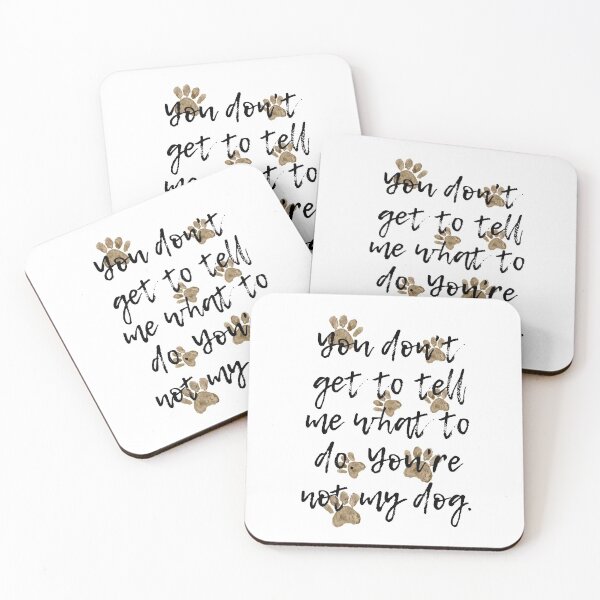 you don't
get to tell
me t to
're
you don't
get to tell
me what to
do. you're
you don't
get to tell
me what to
do. you'
not my
you don't
get to tell
me what to
do. you're
not my dog.